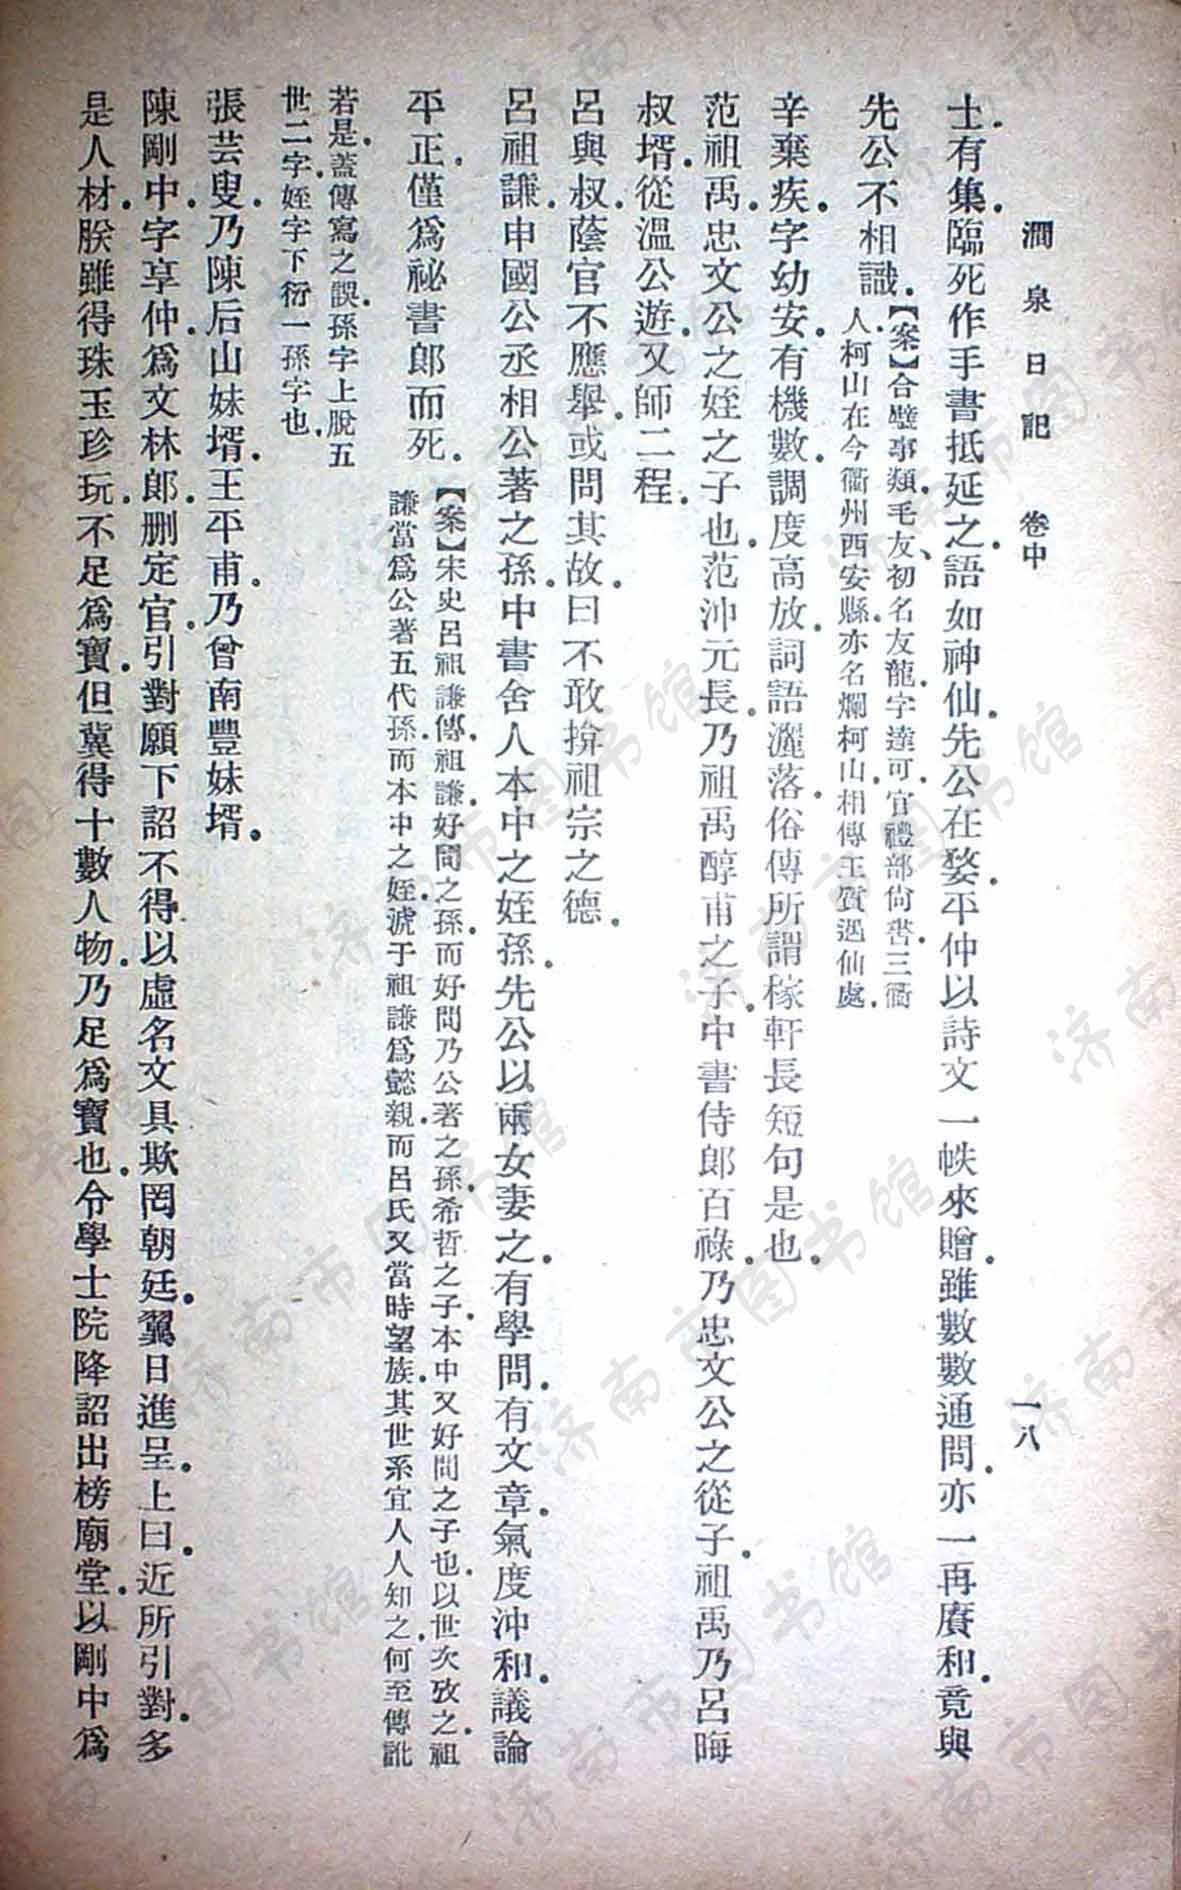 澗泉日記　卷中　一八
士有集臨死作手書抵延之語如神仙先公在婺平仲以詩文一帙來贈雖數數通問亦一再賡和竟與
先公不相識
【案】合璧事類毛友初名友龍字達可官禮部尚書三衢
人柯山在今衢州西安縣亦名爛柯山相傳王質遇仙處
辛棄疾字幼安有機數調度高放詞語灑落俗傳所謂稼軒長短句是也
范祖禹忠文公之姪之子也范沖元長乃祖禹醇甫之子中書侍郎百祿乃忠文公之從子祖禹乃呂晦
叔壻從溫公遊又師二程
呂與叔蔭官不應舉或問其故曰不敢揜祖宗之德
呂祖謙申國公丞相公著之孫中書舍人本中之姪孫先公以兩女妻之有學問有文章氣度沖和議論
平正僅爲祕書郎而死
【案】宋史呂祖謙傳祖謙好問之孫而好問乃公著之孫希哲之子本中又好問之子也以世次攷之祖
謙當爲公著五代孫而本中之姪淲于祖謙爲懿親而呂氏又當時望族其世系宜人人知之何至傳訛
若是蓋傳寫之誤孫字上脫五
世二字姪字下衍一孫字也
張芸叟乃陳后山妹壻王平甫乃曾南豐妹壻
陳剛中字享仲爲文林郎删定官引對願下詔不得以虛名文具欺罔朝廷翼日進呈上曰近所引對多
是人材朕雖得珠玉珍玩不足爲寶但冀得十數人物乃足爲寶也令學士院降詔出榜廟堂以剛中爲
济南市图书馆